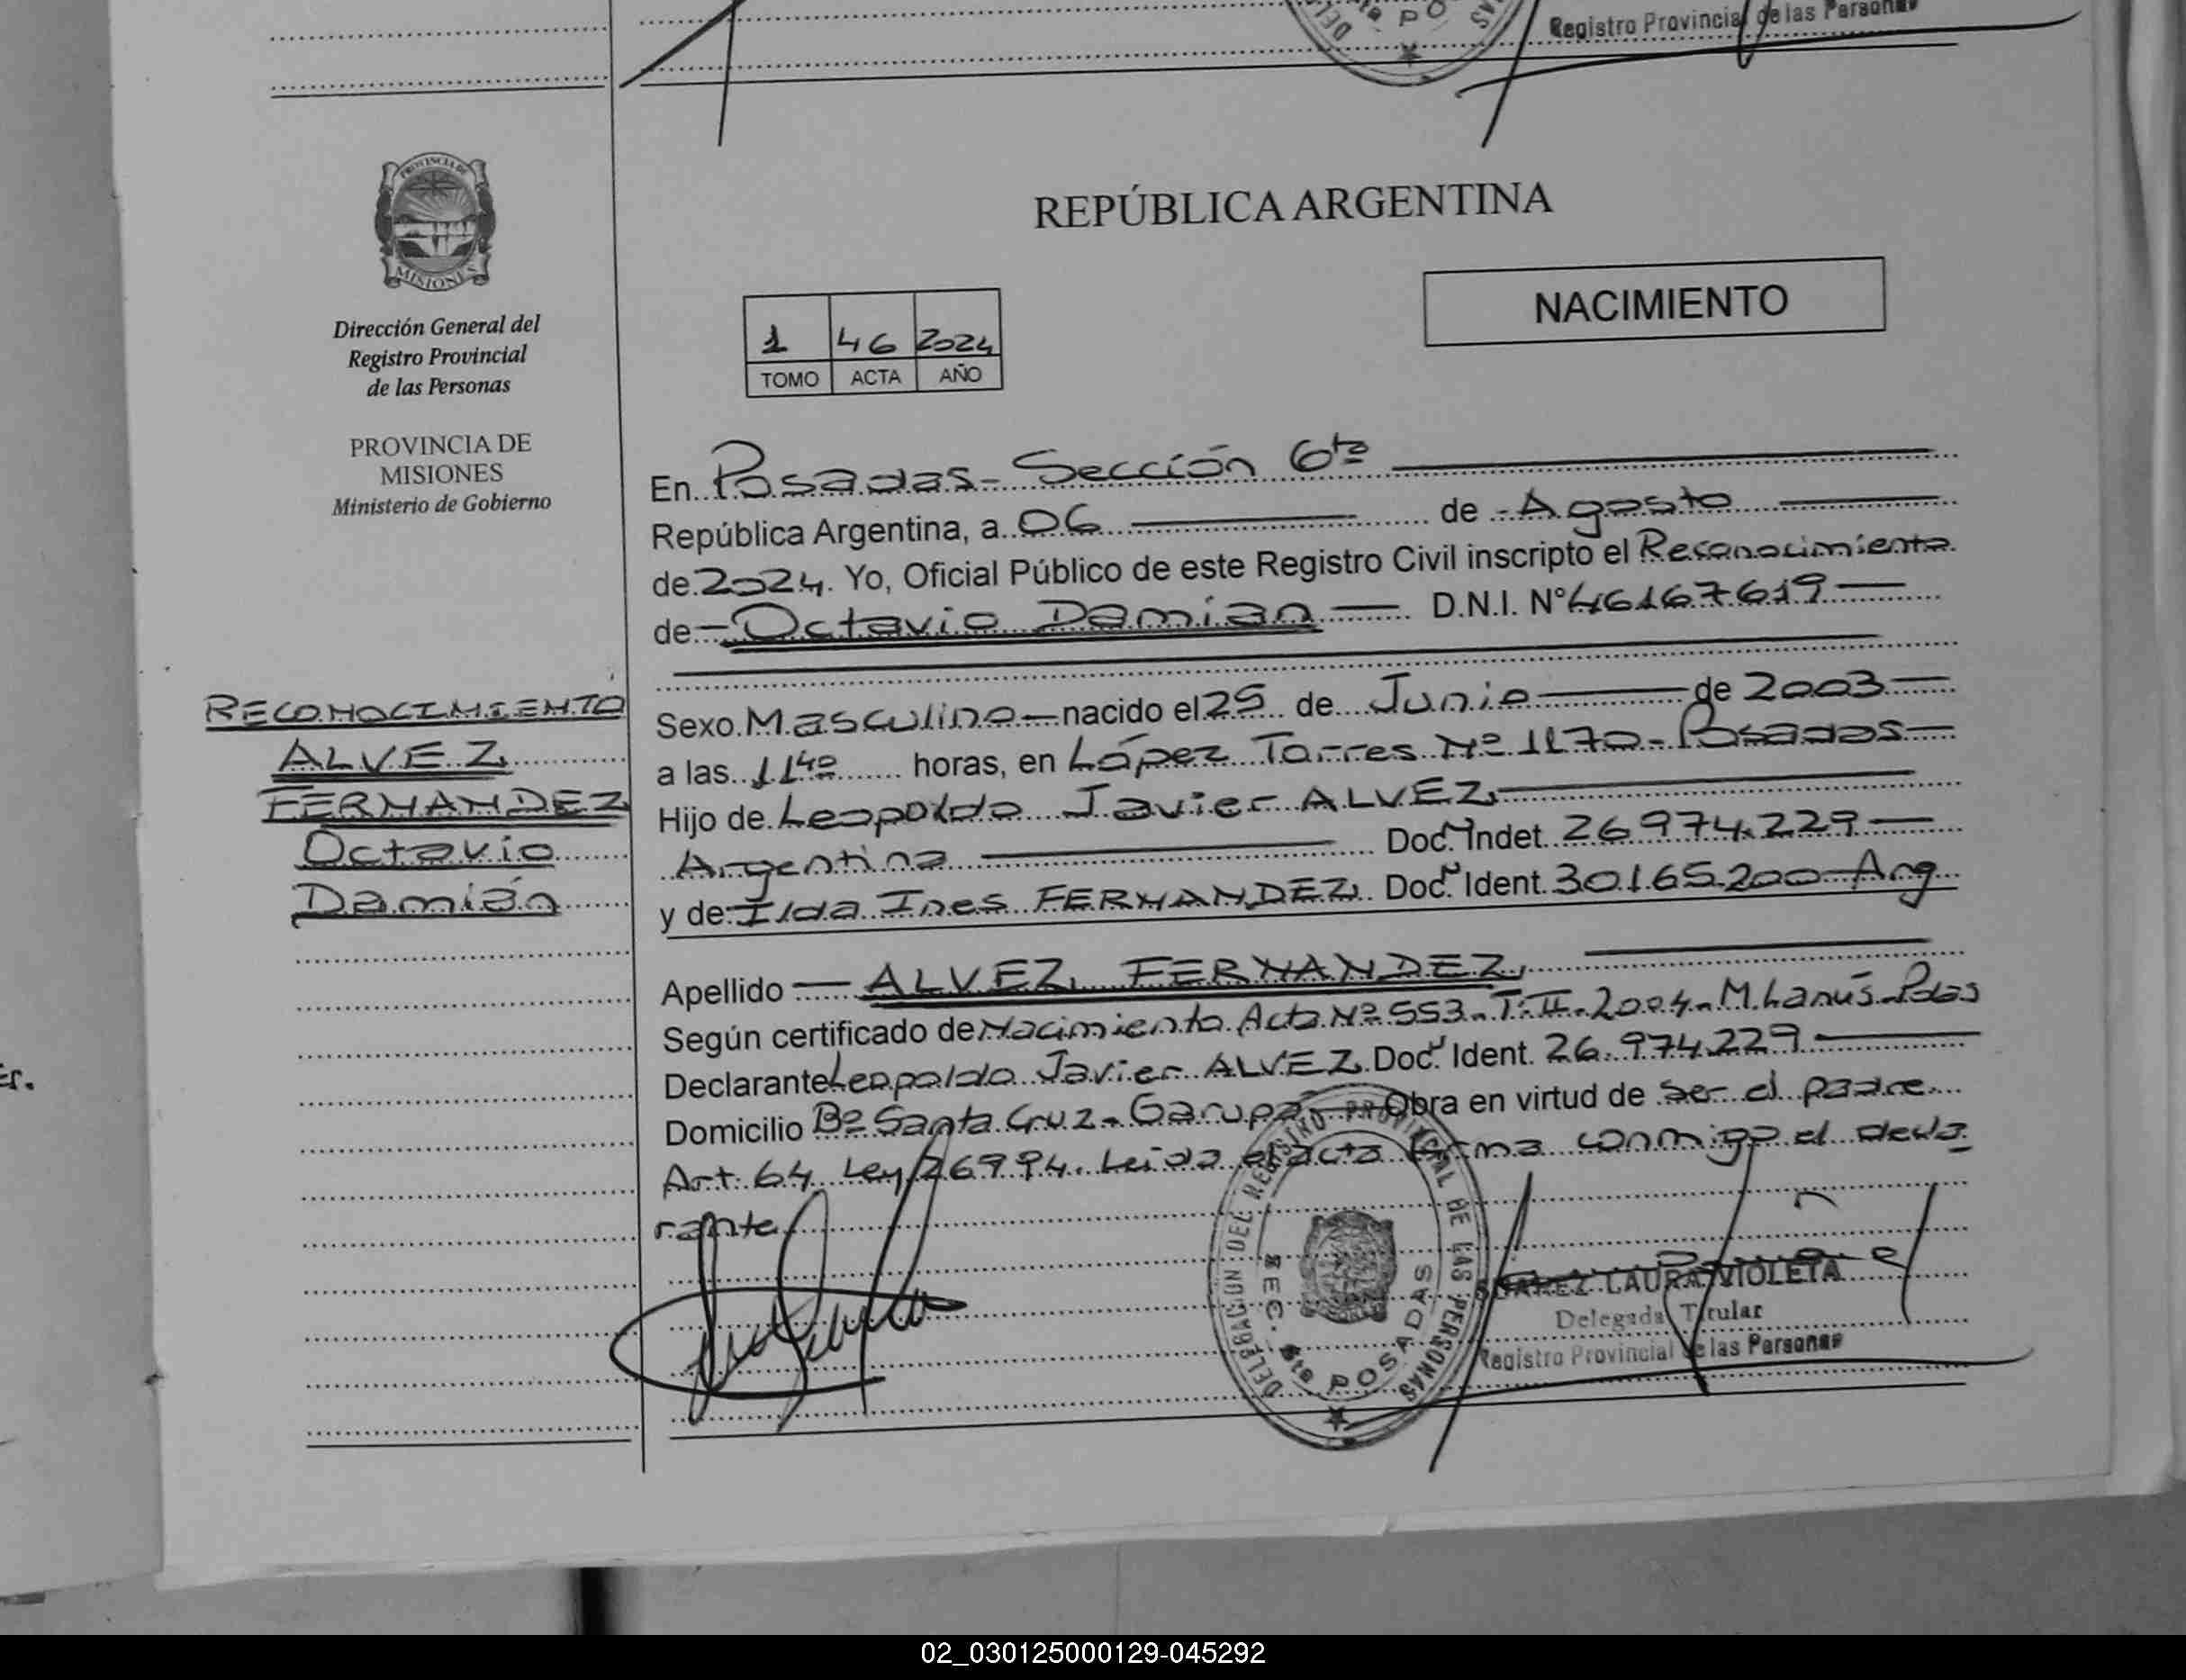 Registro Provincial de las Personas
PROVINCIA DE
MISIONES
Dirección General del
Registro Provincial
de las Personas
PROVINCIA DE
MISIONES
Ministerio de Gobierno
RECONOCIMIENTO
ALVEZ
FERNANDEZ
Octavio
Damián
REPÚBLICA ARGENTINA
NACIMIENTO
1 46 2024
TOMO ACTA AÑO
En Posadas - Sección 6ta
República Argentina, a 06 de Agosto
de 2024. Yo, Oficial Público de este Registro Civil inscripto el Reconocimiento
de Octavio Damian D.N.I. N° 46167619
Sexo Masculino nacido el 25 de Junio de 2003
a las 11 40 horas, en López Torres Nº 1170 - Posadas
Hijo de Leopoldo Javier ALVEZ
Argentina Doc. Indet. 26974.229
y de Ilda Ines FERNANDEZ Doc. Ident. 30.165.200 Arg
Apellido ALVEZ FERNANDEZ
Según certificado de Nacimiento Acta Nº 553 - T: II - 2004 - M. Lanús - Pdas
Declarante Leopoldo Javier ALVEZ Doc. Ident. 26.974.229
Domicilio Bº Santa Cruz - Garupá Obra en virtud de ser el padre
Art. 64 Ley 26994. Leida el acta firma conmigo el decla
rante
DELEGACION DEL REGISTRO PROVINCIAL DE LAS PERSONAS
SEC. 6ta POSADAS
SUAREZ LAURA VIOLETA
Delegada Titular
Registro Provincial de las Personas
02_030125000129-045292